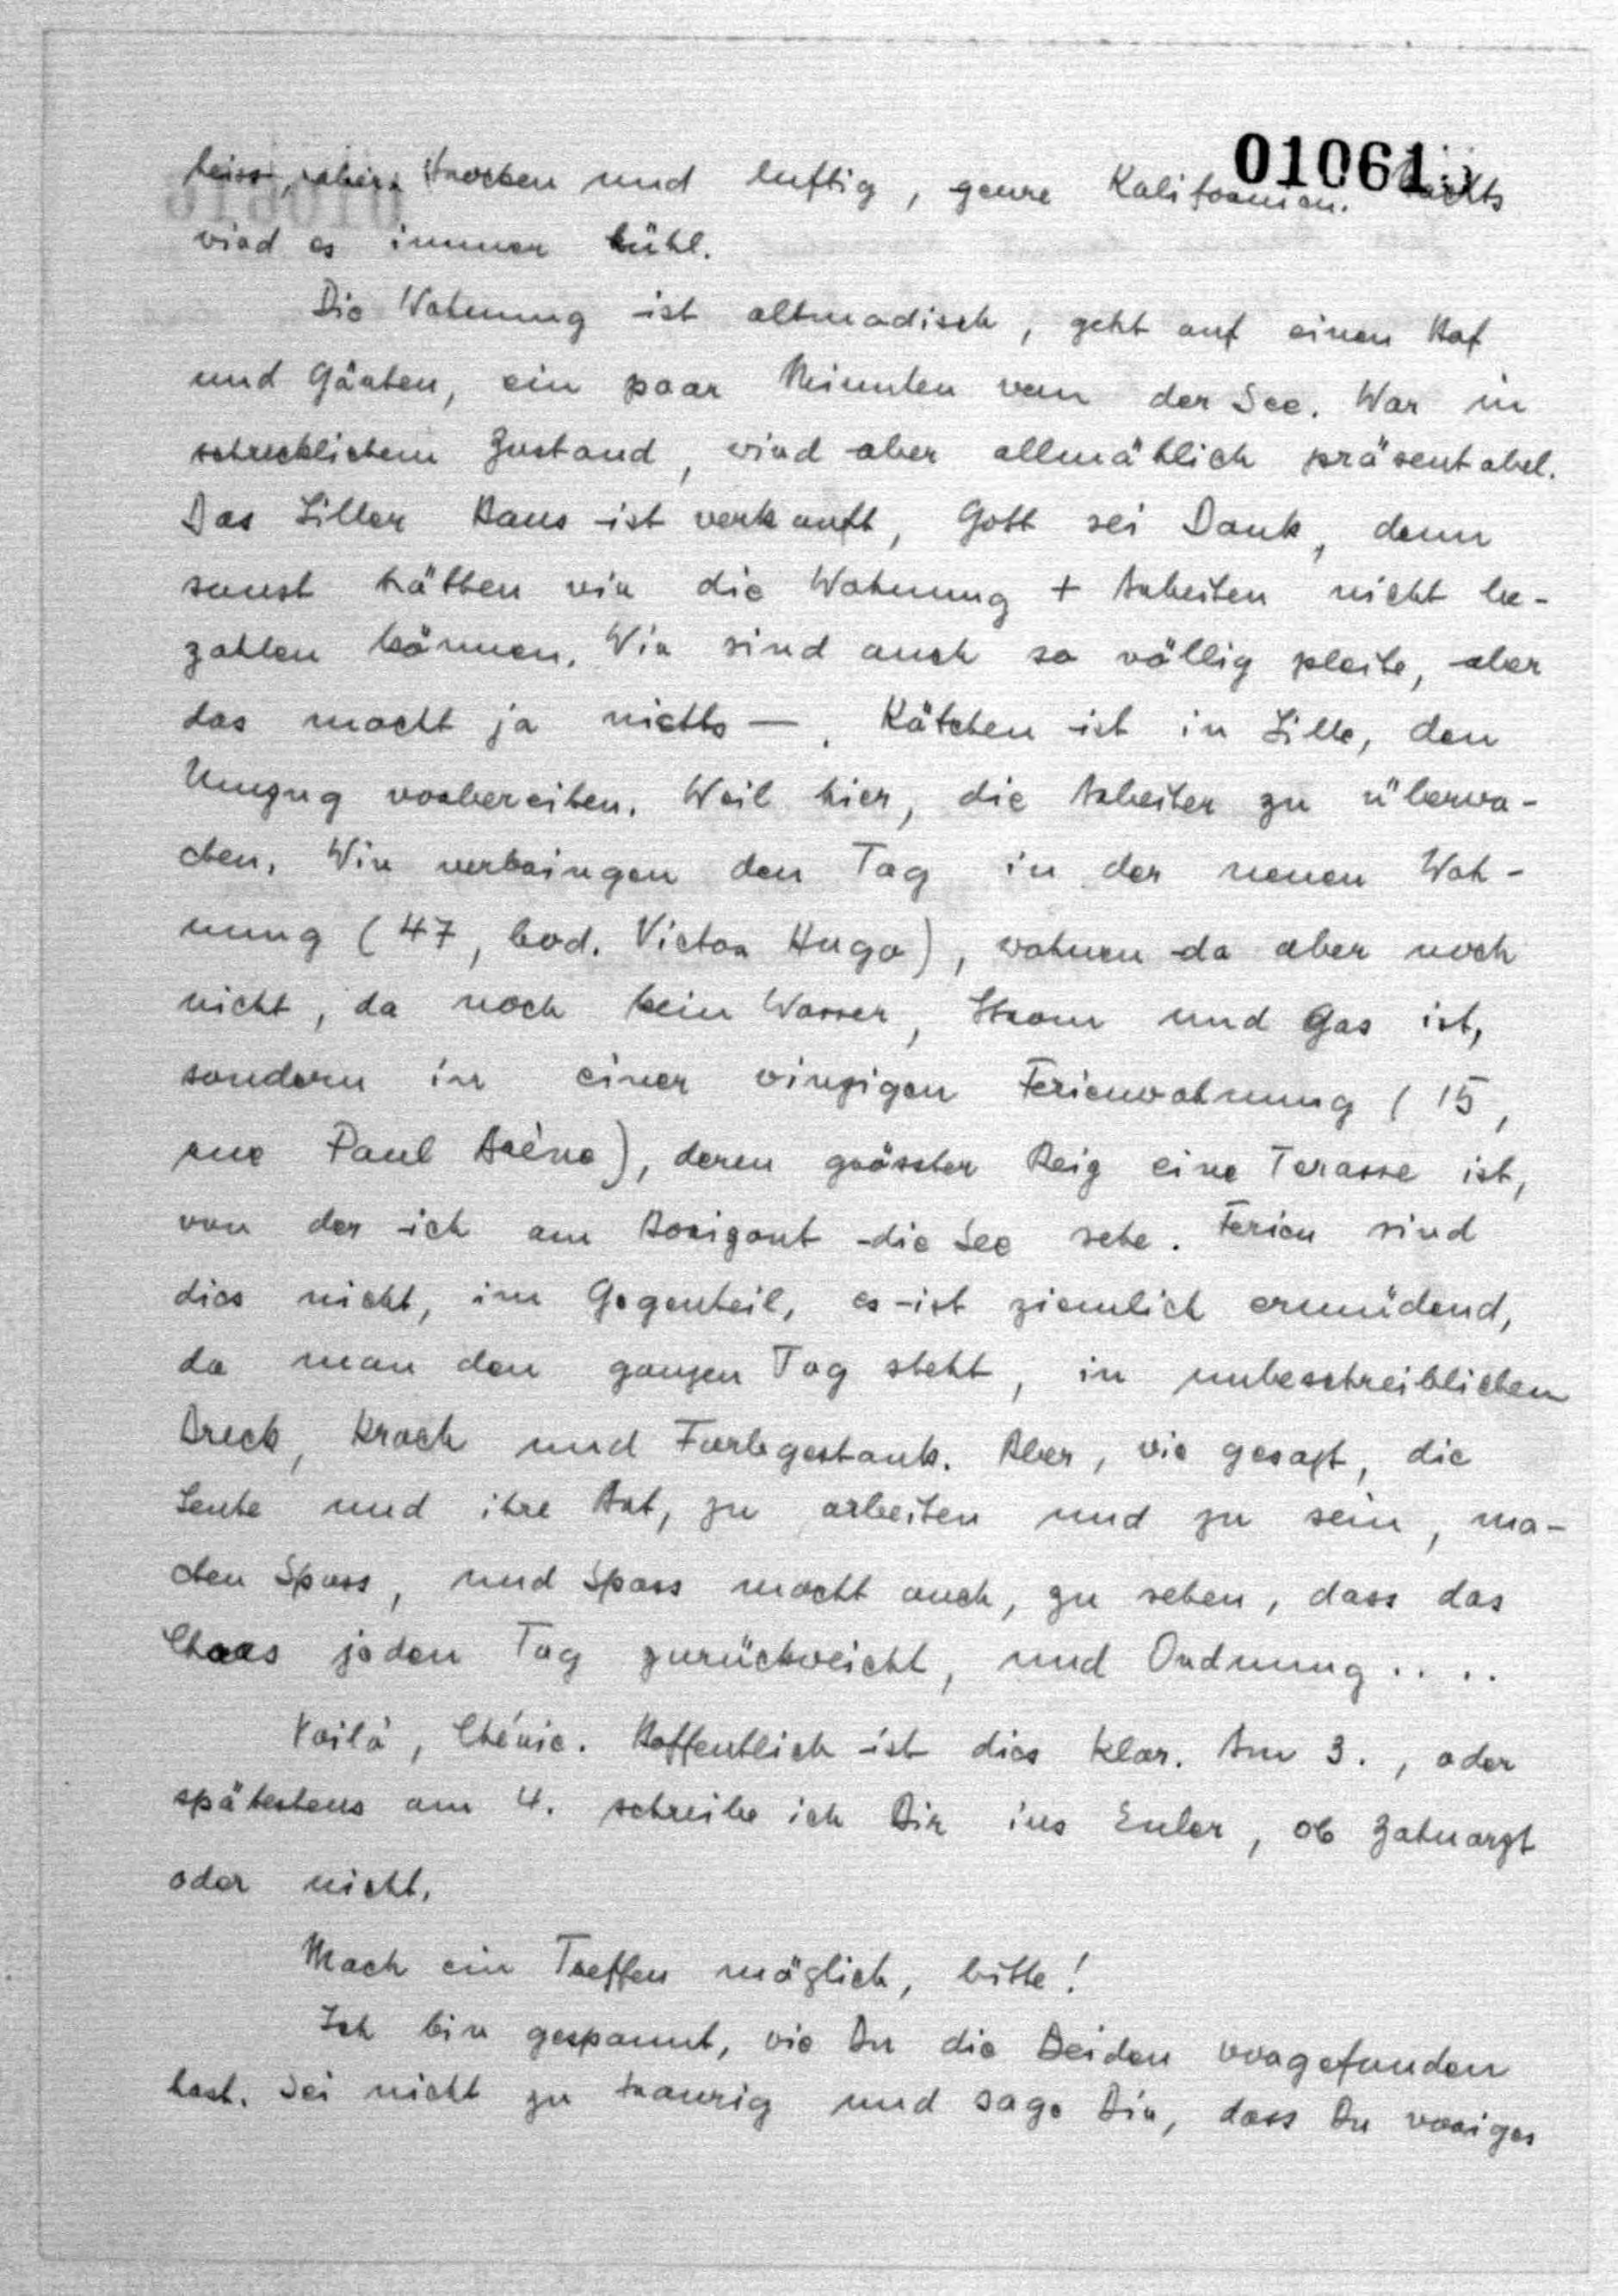 01061
heiss, aber trocken und luftig, genre Kalifornien. Nachts
wird es immer kühl.
Die Wohnung ist altmodisch, geht auf einen Hof
und Gärten, ein paar Minuten von der See. War in
schrecklichem Zustand, wird aber allmählich präsentabel.
Das Liller Haus ist verkauft, Gott sei Dank, denn
sonst hätten wir die Wohnung + Arbeiten nicht be-
zahlen können. Wir sind auch so völlig pleite, aber
das macht ja nichts —. Kätchen ist in Lille, den
Umzug vorbereiten. Weil hier, die Arbeiter zu überwa-
chen. Wir verbringen den Tag in der neuen Woh-
nung (47, bvd. Victor Hugo), wohnen da aber noch
nicht, da noch kein Wasser, Strom und Gas ist,
sondern in einer winzigen Ferienwohnung (15,
rue Paul Arène), deren grösster Reiz eine Terasse ist,
von der ich am Horizont die See sehe. Ferien sind
dies nicht, im Gegenteil, es ist ziemlich ermüdend,
da man den ganzen Tag steht, in unbeschreiblichem
Dreck, Krach und Farbgestank. Aber, wie gesagt, die
Leute und ihre Art, zu arbeiten und zu sein, ma-
chen Spass, und Spass macht auch, zu sehen, dass das
Chaos jeden Tag zurückweicht, und Ordnung....
Voilà, Chérie. Hoffentlich ist dies klar. Am 3., oder
spätestens am 4. schreibe ich Dir ins Euler, ob Zahnarzt
oder nicht.
Mach ein Treffen möglich, bitte!
Ich bin gespannt, wie Du die Beiden vorgefunden
hast. Sei nicht zu traurig und sage Dir, dass Du voriges